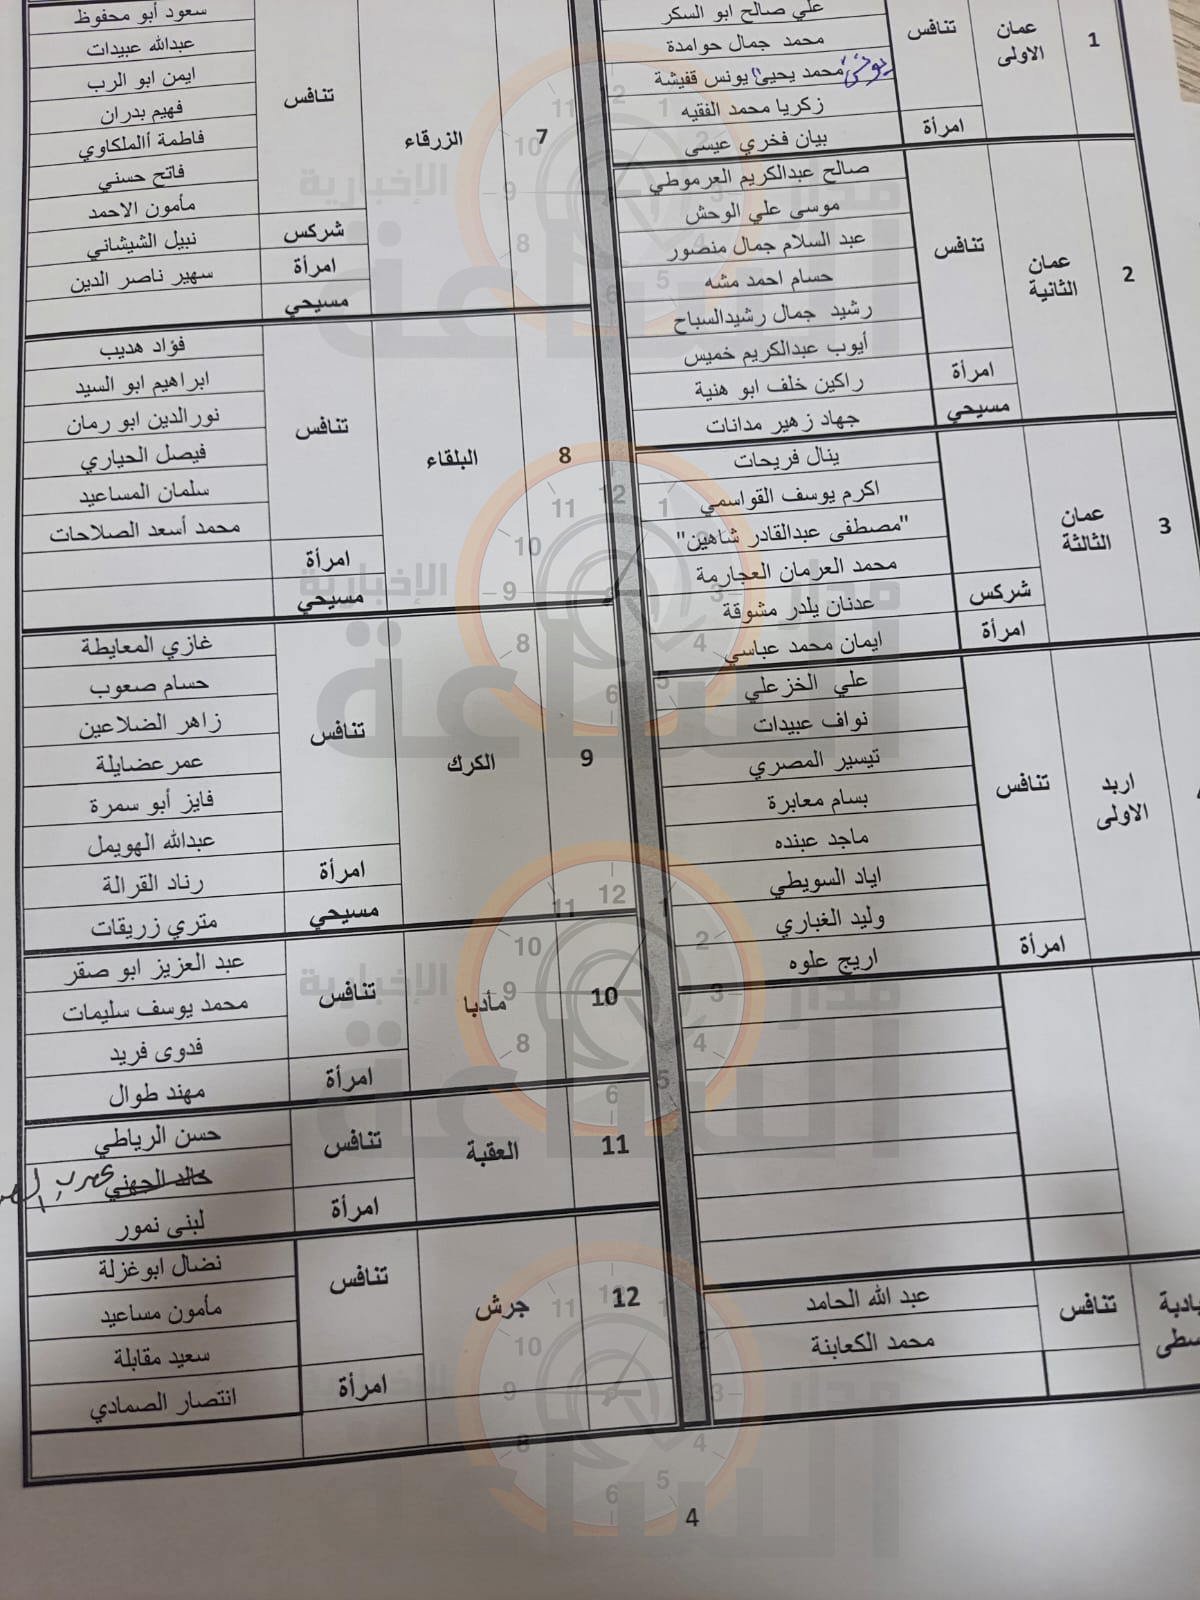 1
عمان
الاولى
تنافس
علي صالح ابو السكر
محمد جمال حوامدة
محمد يحيى يونس قفيشة
زكريا محمد الفقيه
امرأة
بيان فخري عيسى
2
عمان
الثانية
تنافس
صالح عبدالكريم العرموطي
موسى علي الوحش
عبد السلام جمال منصور
حسام احمد مشه
رشيد جمال رشيدالسباح
أيوب عبدالكريم خميس
امرأة
راكين خلف ابو هنية
مسيحي
جهاد زهير مدانات
3
عمان
الثالثة
ينال فريحات
اكرم يوسف القواسمي
"مصطفى عبدالقادر شاهين"
محمد العرمان العجارمة
شركس
عدنان يلدر مشوقة
امرأة
ايمان محمد عباسي
اربد
الاولى
تنافس
علي الخزعلي
نواف عبيدات
تيسير المصري
بسام معابرة
ماجد عبنده
اياد السويطي
وليد الغباري
امرأة
اريج علوه
تنافس
عبد الله الحامد
محمد الكعابنة
7
الزرقاء
تنافس
سعود أبو محفوظ
عبدالله عبيدات
ايمن ابو الرب
فهيم بدران
فاطمة أالملكاوي
فاتح حسني
مأمون الاحمد
شركس
نبيل الشيشاني
امرأة
سهير ناصر الدين
مسيحي
8
البلقاء
تنافس
فؤاد هديب
ابراهيم ابو السيد
نورالدين ابو رمان
فيصل الحياري
سلمان المساعيد
محمد أسعد الصلاحات
امرأة
مسيحي
9
الكرك
تنافس
غازي المعايطة
حسام صعوب
زاهر الضلاعين
عمرعضايلة
فايز أبو سمرة
عبدالله الهويمل
امرأة
رناد القرالة
مسيحي
متري زريقات
10
مأدبا
تنافس
عبد العزيز ابو صقر
محمد يوسف سليمات
فدوى فريد
امرأة
مهند طوال
11
العقبة
تنافس
حسن الرياطي
خالد الجهني
امرأة
لبنى نمور
12
جرش
تنافس
نضال ابوغزلة
مأمون مساعيد
سعيد مقابلة
امرأة
انتصار الصمادي
4
مدار الساعة الإخبارية